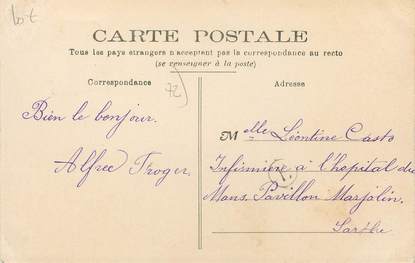 lot
CARTE POSTALE
Tous les pays étrangers n'acceptent pas la correspondance au recto
(se renseigner à la poste)
Correspondance
72
Bien le bonjour.
Alfred Troger.
Adresse
Melle Léontine Casto
Infirmière à l'hopital du
Mans. Pavillon Marjolin.
Sarthe